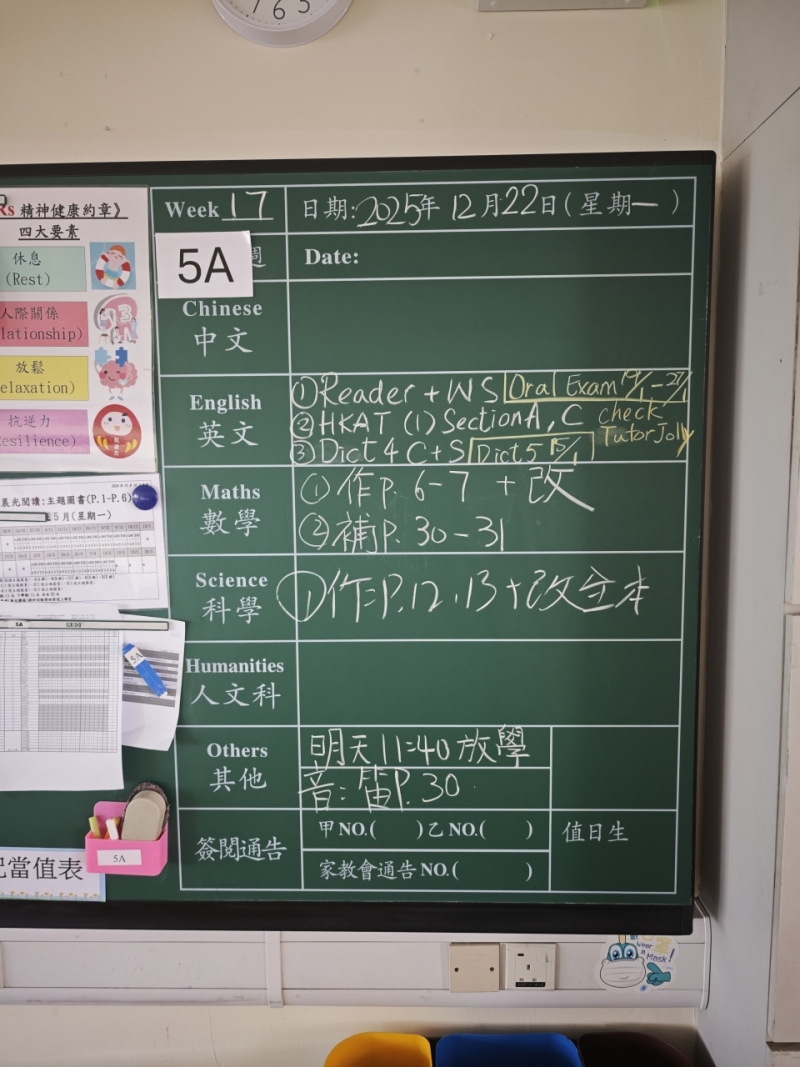 6 5
精神健康約章》
四大要素
休息
(Rest)
人際關係
放鬆
抗逆力
晨光閱讀:主題圖書(P.1-P.6)
5月(星期一)
5A
5A
Week 17
日期:2025年12月22日(星期一)
5A
週
Date:
Chinese
中文
English
英文
①Reader + WS Oral Exam
②HKAT (1) Section A, C check
③Dict 4 C+S Dict 5 15/1 TutorJolly
Maths
數學
①作P. 6-7 + 改
②補P. 30-31
Science
科學
①作:P.12,13+改
Humanities
人文科
Others
其他
明天11:40放學
音:笛P.30
簽閱通告
甲NO.( )乙NO.( )
值日生
家教會通告NO.( )
5A
當值表
wear a Mask!